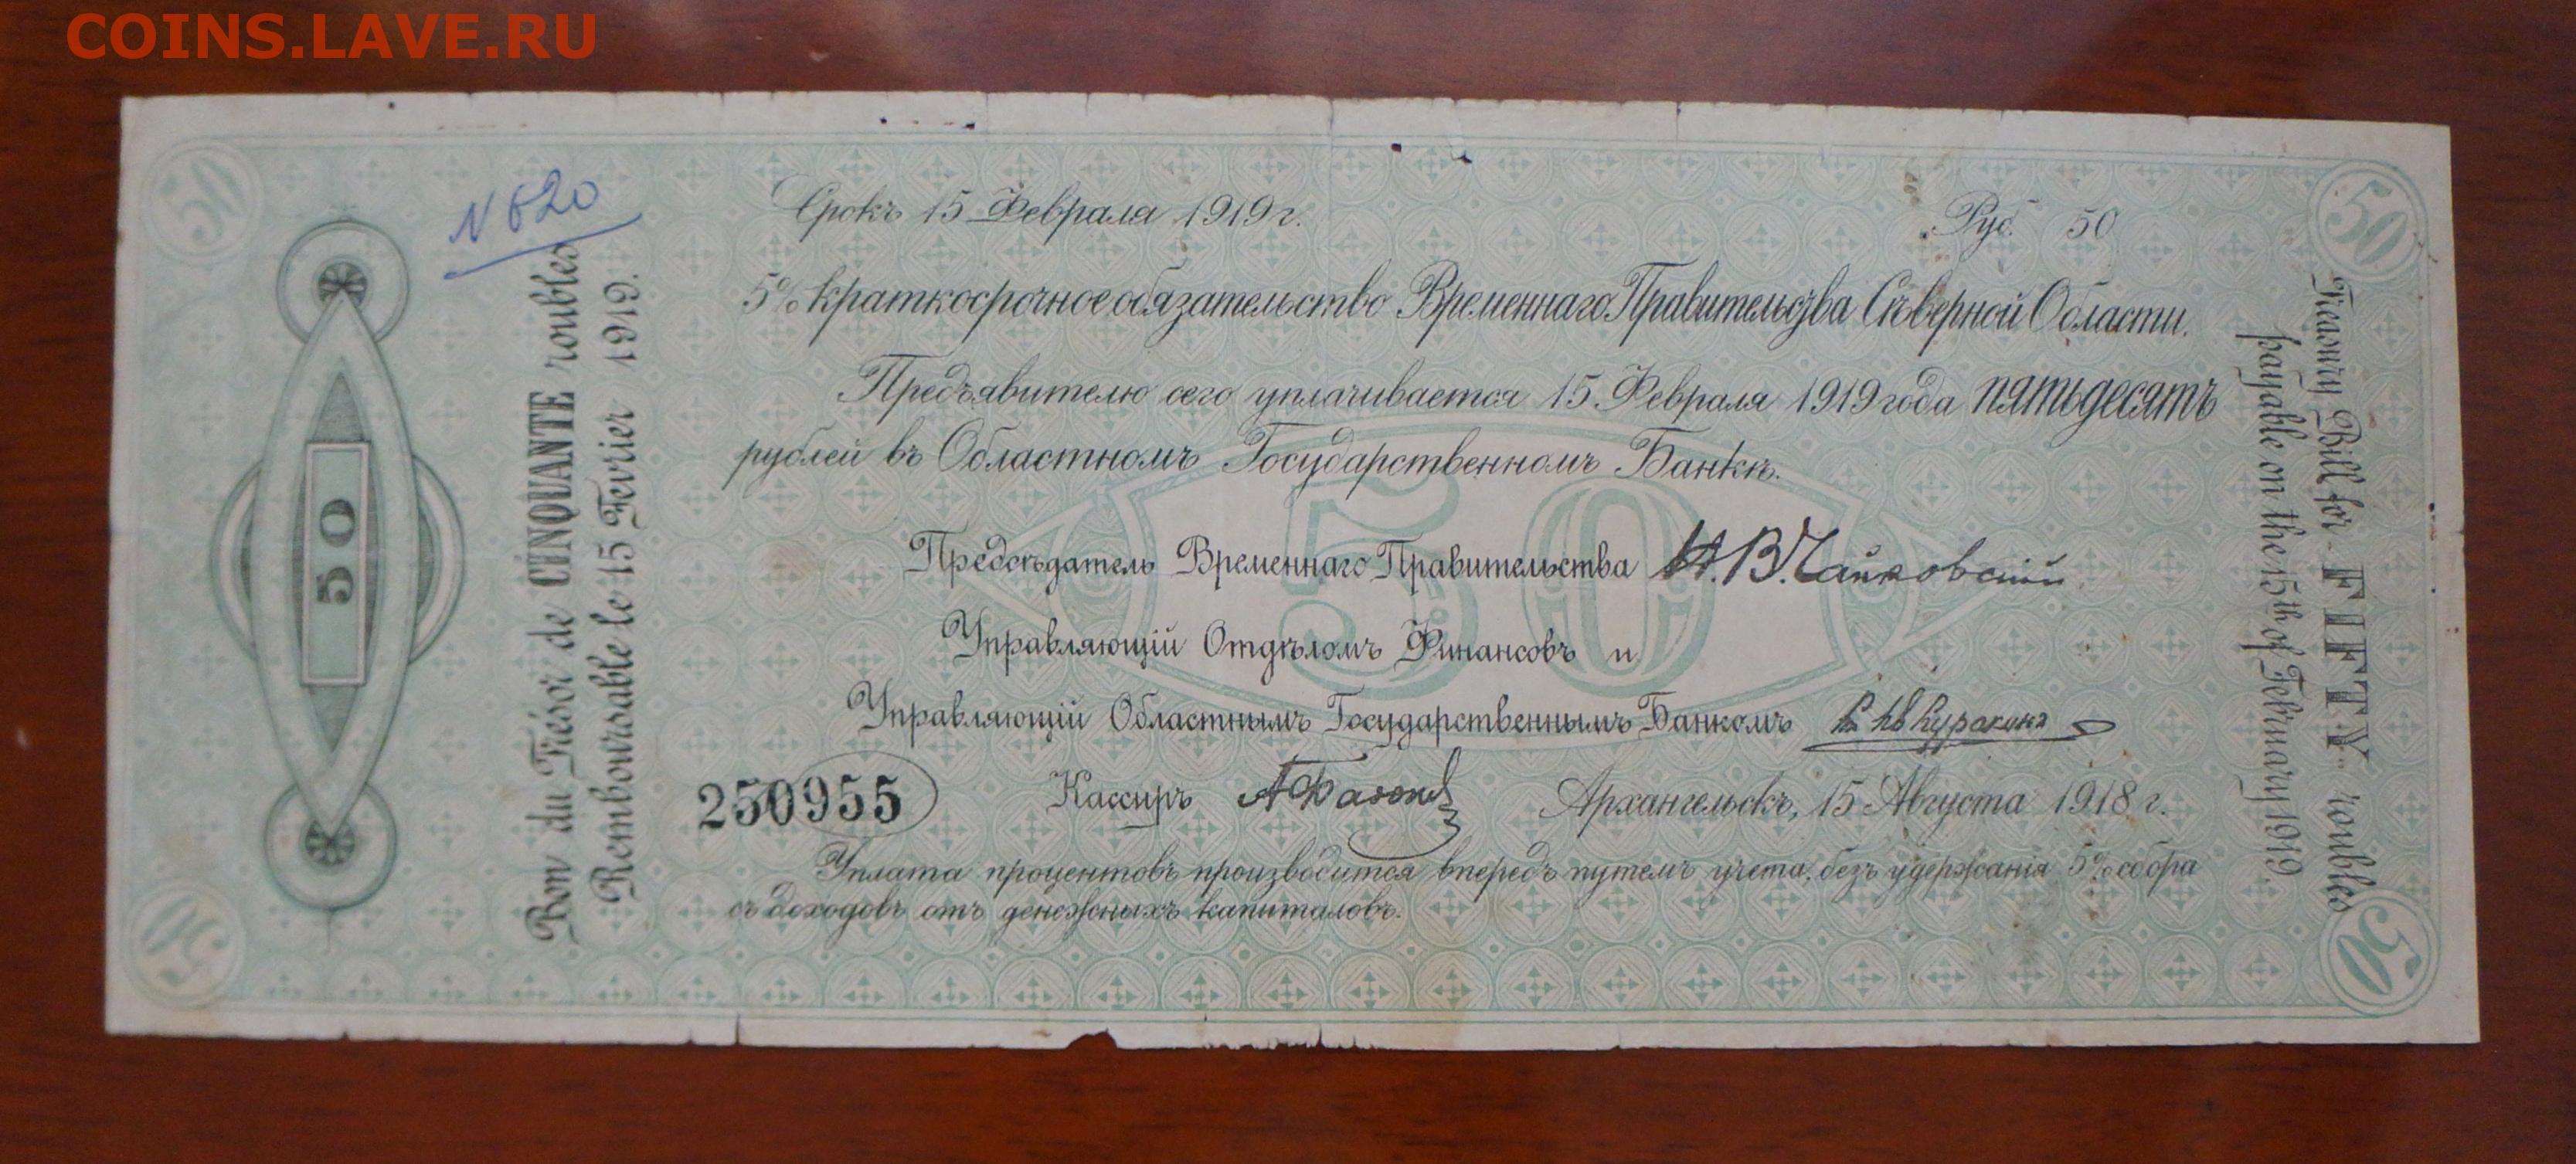 COINS.LAVE.RU
50
50
N 620
Срокъ 15 Февраля 1919 г.
Руб. 50
5% краткосрочное обязательство Временнаго Правительства Съверной Области.
Предъявителю сего уплачивается 15 Февраля 1919 года пятьдесятъ
рублей въ Областномъ Государственномъ Банкѣ.
50
Предсѣдатель Временнаго Правительства Н.В.Чайковскій
Управляющій Отдѣломъ Финансовъ и
Управляющій Областнымъ Государственнымъ Банкомъ Куракинъ
250955
Кассиръ
Архангельскъ, 15 Августа 1918 г.
Уплата процентовъ производится впередъ путемъ учета, безъ удержанія 5% сбора
съ доходовъ отъ денежныхъ капиталовъ.
50
Bon du Trésor de CINQUANTE roubles
Remboursable le 15 Fevrier 1919.
Treasury Bill for FIFTY roubles
payable on the 15th of February 1919.
50
50